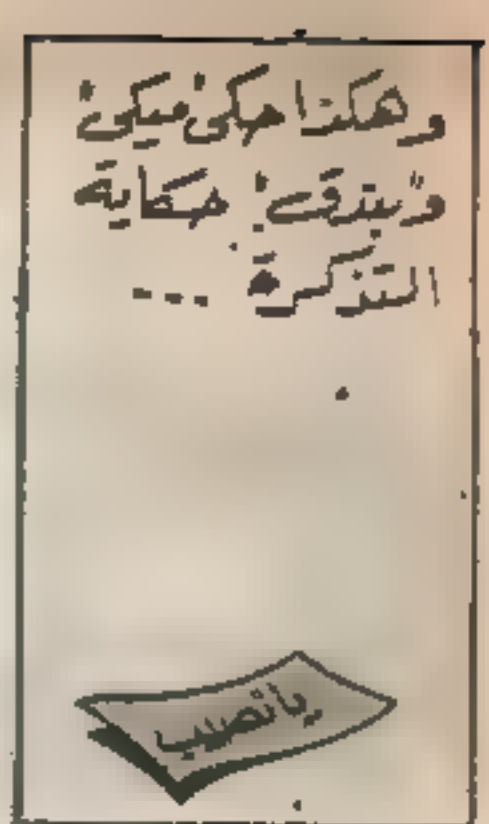 وهكذا حكى ميكي
وبندق حكاية
التذكرة ...
يانصيب